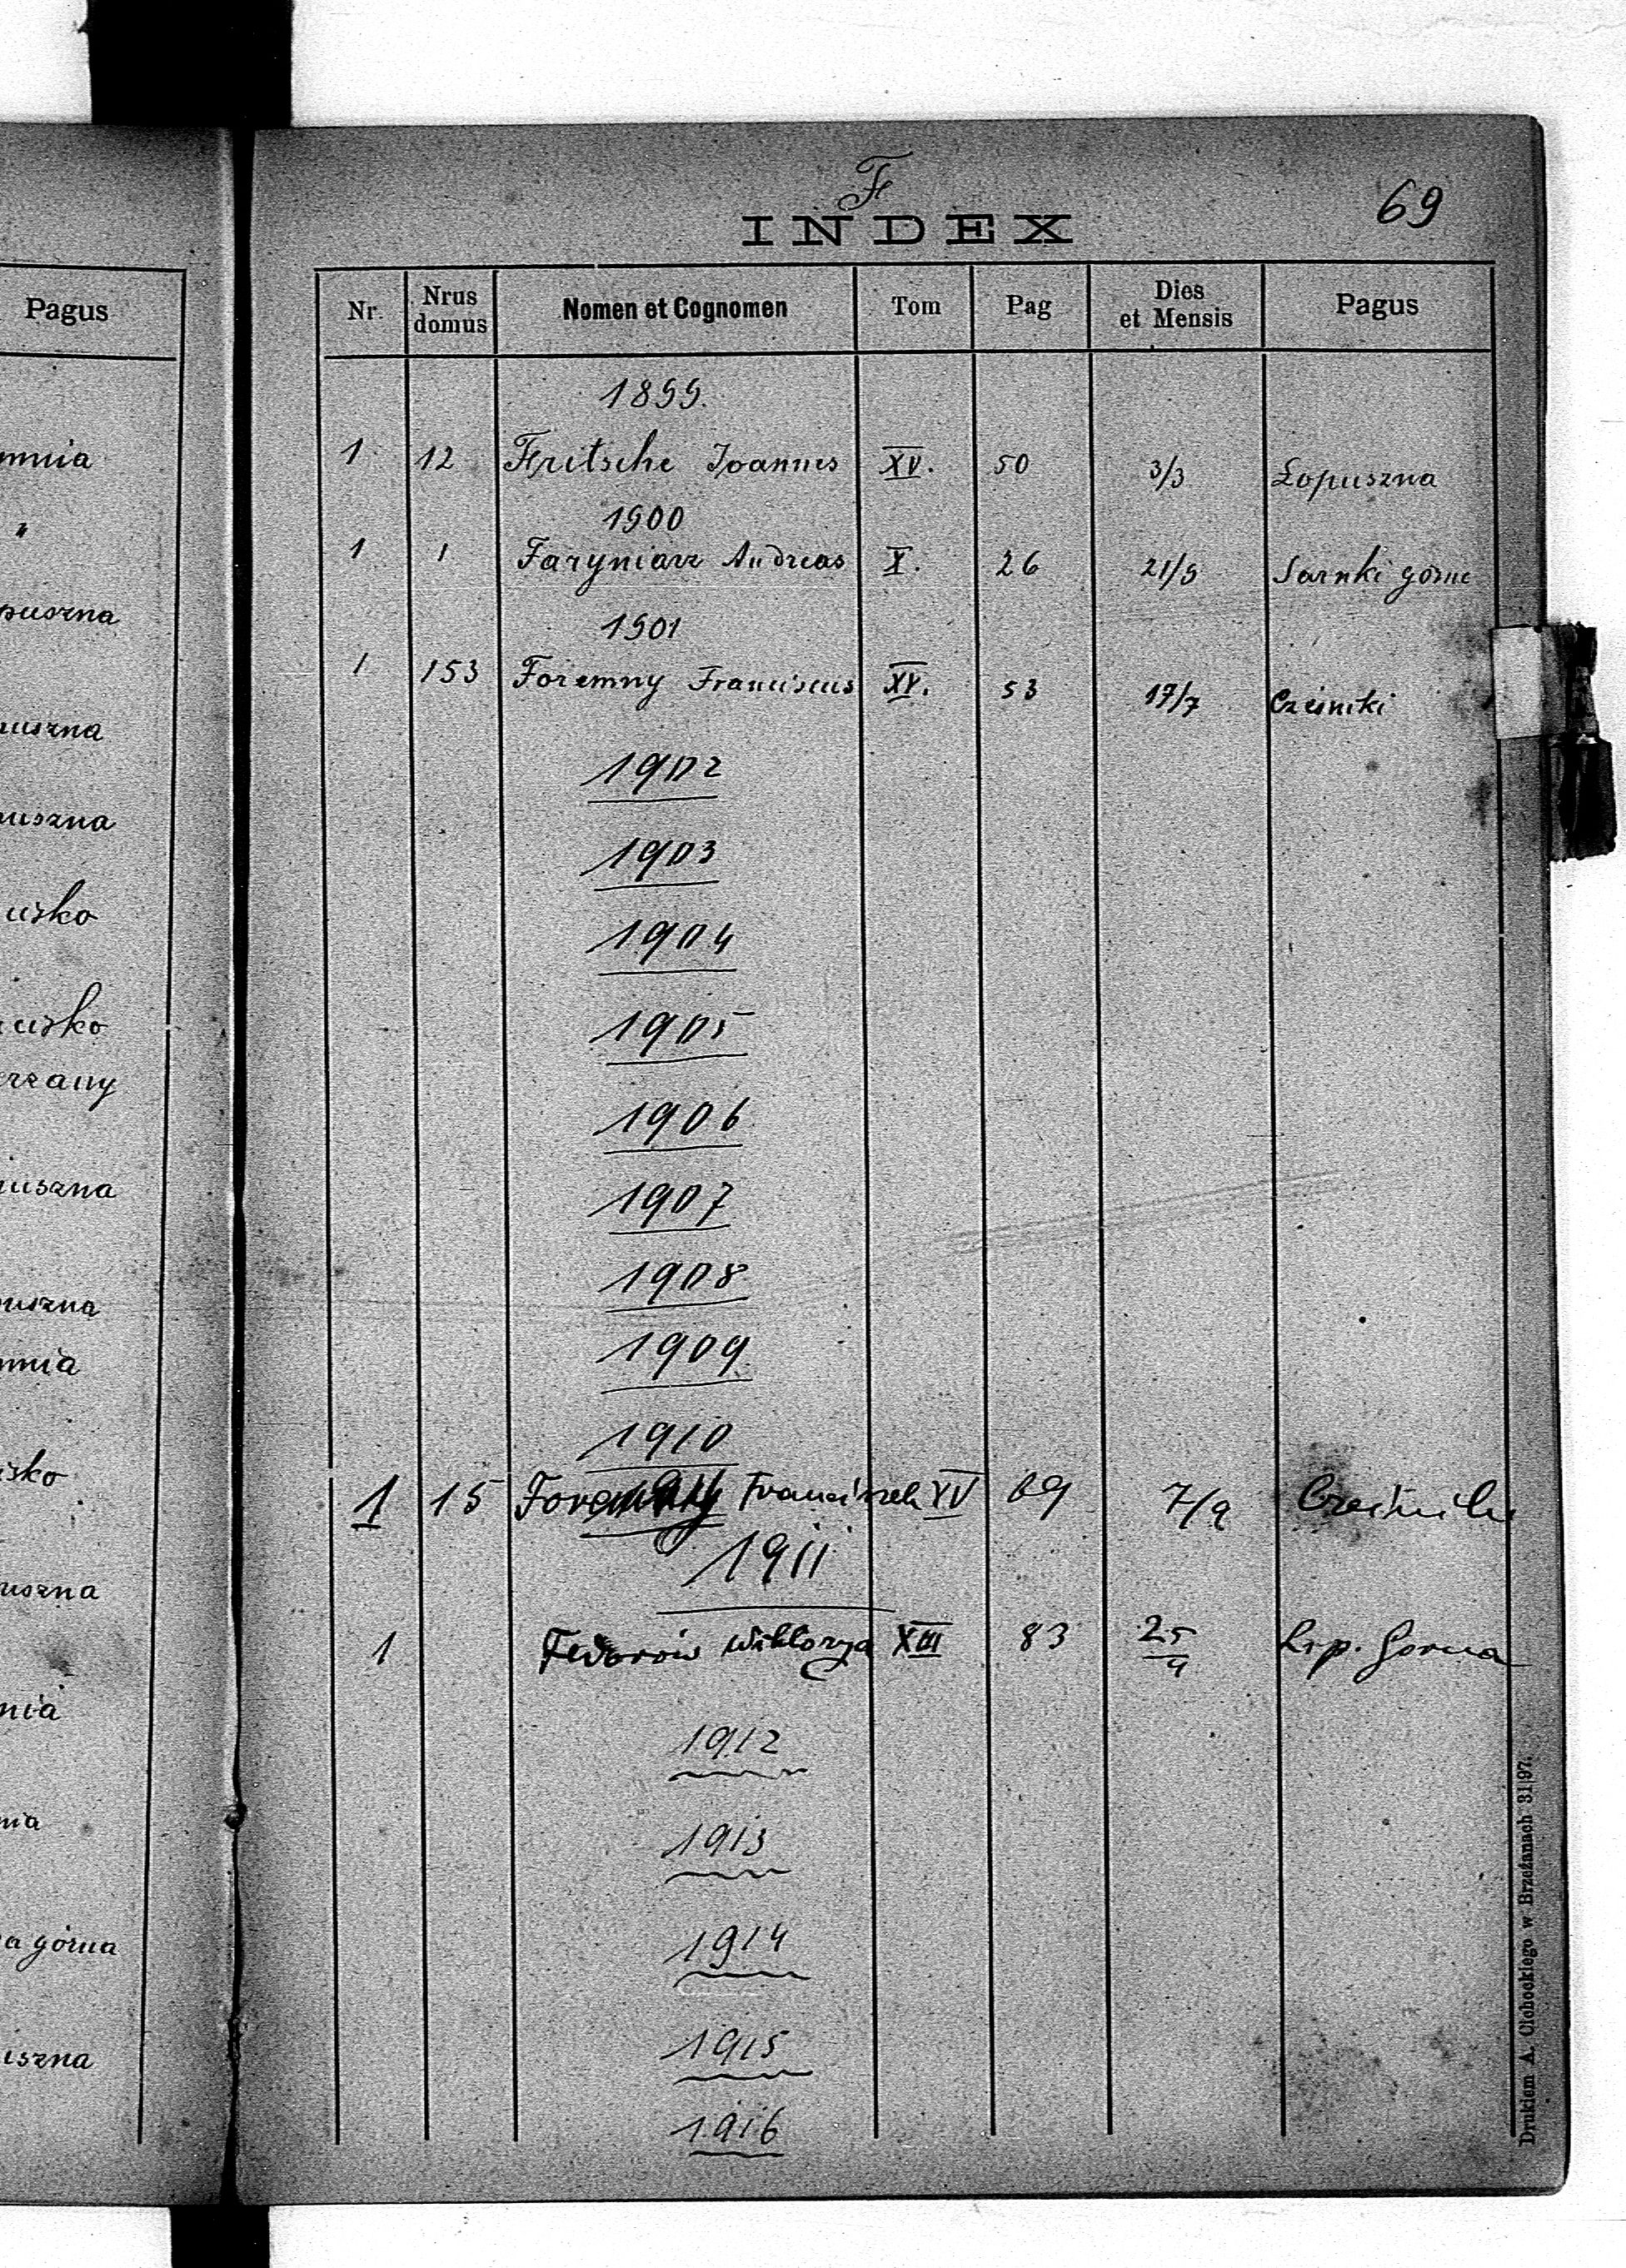 Pagus
mnia
"
puszna
uszna
uszna
usko
usko
rzany
uszna
uszna
mnia
isko
uszna
nia
nia
a górna
iszna
F
69
INDEX
Nr. Nrus domus Nomen et Cognomen Tom Pag Dies et Mensis Pagus
1899.
1 12 Fritsche Joannes XV. 50 3/3 Łopuszna
1900
1 1 Faryniarz Andreas X. 26 21/9 Sarnki górne
1901
1 153 Foremny Franciscus XV. 53 17/7 Cześniki
1902
1903
1904
1905
1906
1907
1908
1909
1910
1 15 Foremny Franciszek XV 69 7/9 Cześniki
1911
1 Fedorów Wiktorya XIII 83 25/9 Lip. Gorna
1912
1913
1914
1915
1916
Drukiem A. Cichockiego w Brzeżanach 31|97.